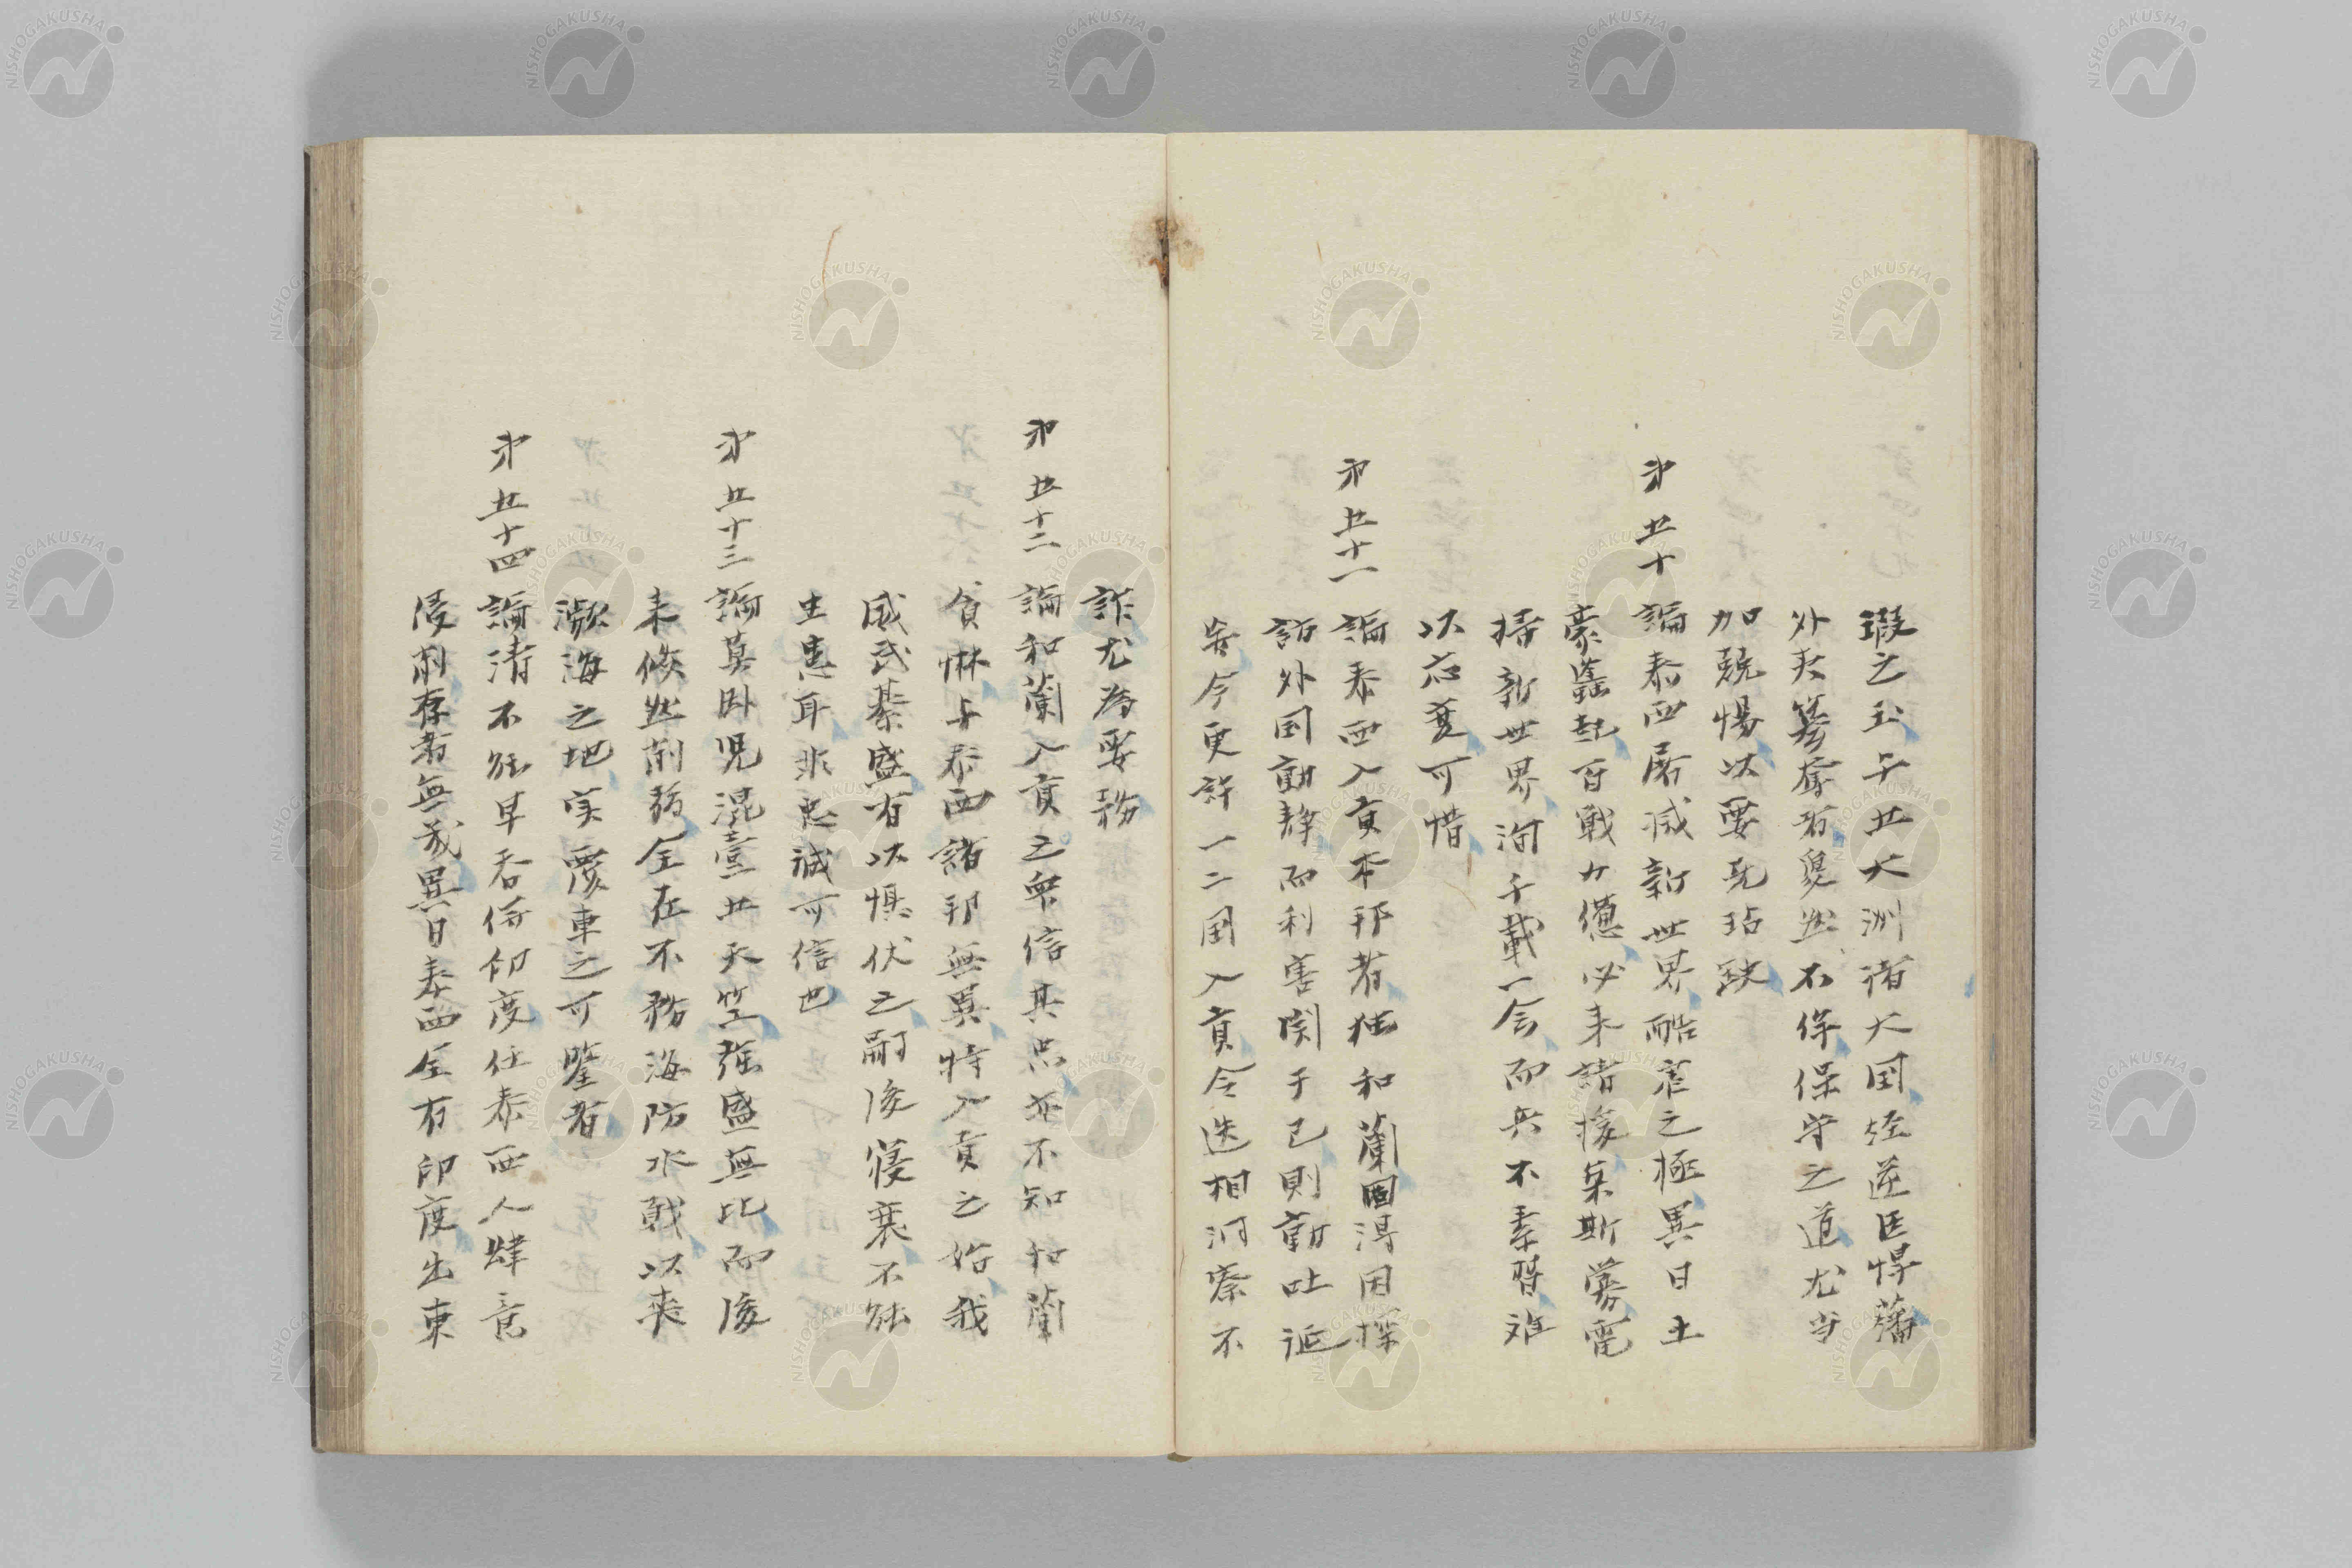 瑕之玉于五大洲諸大国経逆臣悍藩
外夷簒奪者夐然不侔保守之道尤当
加兢惕以要免玷欠
第五十 論泰西屠滅新世界酷虐之極異日土
豪蠭起百戦力億必来諸接案斯夢電
掃新世界洵千載一会而兵不素習难
以応変可惜
第五十一 論泰西入貢本邦者独和蘭固得因探
訪外国動静而利害関于己則動吐延
安今更許一二国入貢令迭相河察不
詐尤為要務
第五十二 論和蘭入貢之舉信其忠亦不知和蘭
貪惏与泰西諸邦無異特入貢之始我
威武綦盛有以慎伏之嗣後寖衰不能
生患耳非忠誠可信也
第五十三 論莫臥児混壹五天竺強盛無比而後
来倏然削弱全在不務海防水戦以喪
瀕海之地実覆車之可鑒者
第五十四 論清不能早呑併印度任泰西人肆意
侵削存者無幾異日泰西全有印度出東